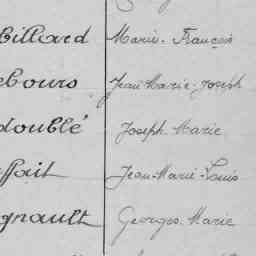 billard Marie-François
ebours Jean Marie-Joseph
doublé Joseph Marie
ffait Jean-Marie-Louis
gnault Georges Marie